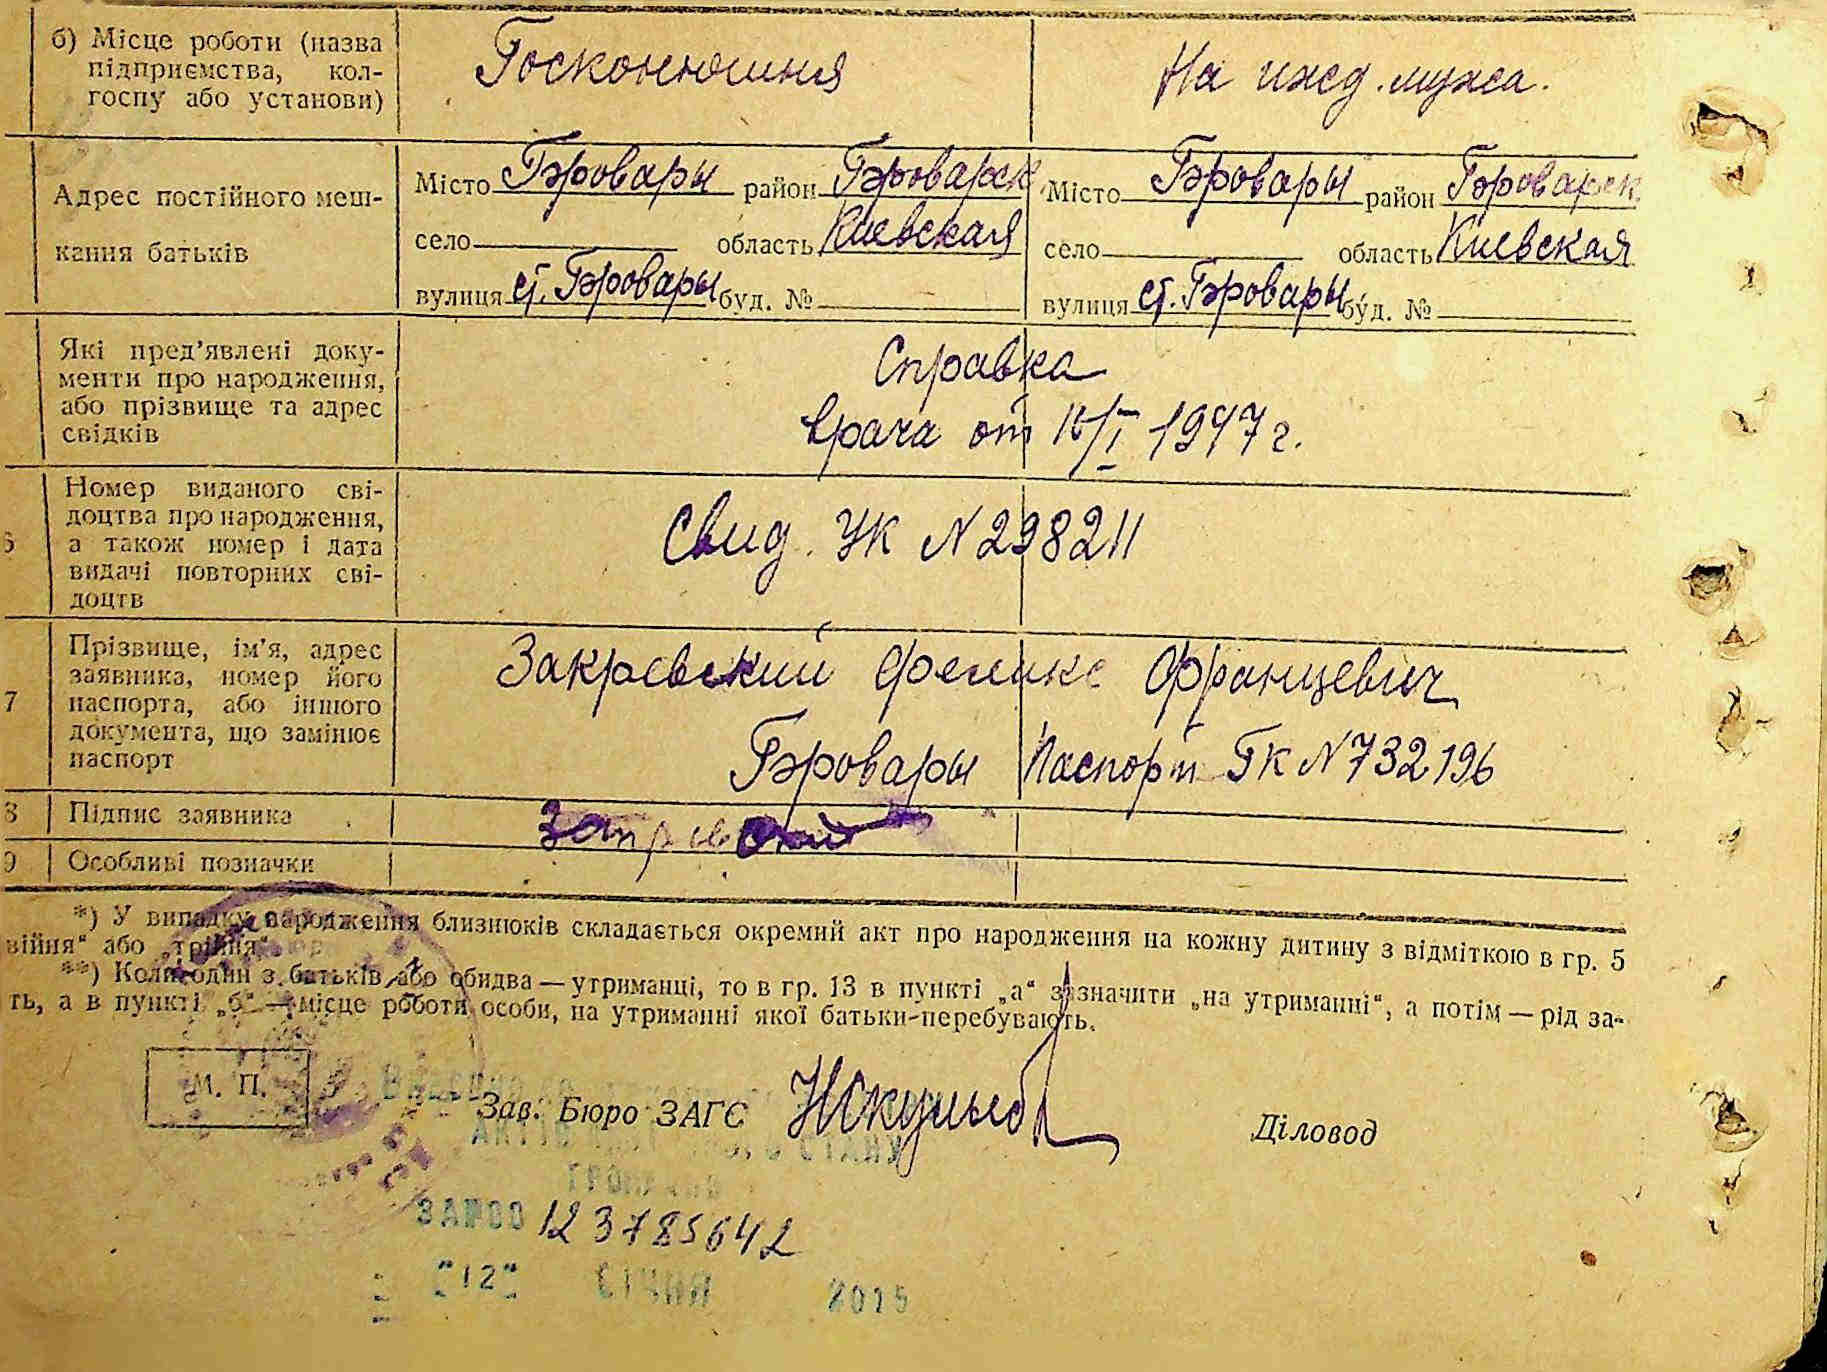 б) Місце роботи (назва
підприємства, кол-
госпу або установи)
Госконюшня
На ижд. мужа.
Адрес постійного меш-
кання батьків
Місто Бровары район Броварск
село область Киевская
вулиця ст. Бровары буд. №
Місто Бровары район Броварск
село область Киевская
вулиця ст. Бровары буд. №
Які пред'явлені доку-
менти про народження,
або прізвище та адрес
свідків
Справка
врача от /I 1947 г.
6 Номер виданого сві-
доцтва про народження,
а також номер і дата
видачі повторних сві-
доцтв
Свид. УК N 298211
7 Прізвище, ім'я, адрес
заявника, номер його
паспорта, або іншого
документа, що замінює
паспорт
Закревский Феликс Францевич
Бровары Паспорт БК N 732196
8 Підпис заявника
9 Особливі позначки
*) У випадку народження близнюків складається окремий акт про народження на кожну дитину з відміткою в гр. 5
війня" або „трійня".
**) Коли один з батьків або обидва — утриманці, то в гр. 13 в пункті „а" зазначити „на утриманні", а потім — рід за-
ть, а в пункті „б" — місце роботи особи, на утриманні якої батьки перебувають.
М. П.
Зав. Бюро ЗАГС
Діловод
СТАНУ
123785642
"12" СІЧНЯ 2015